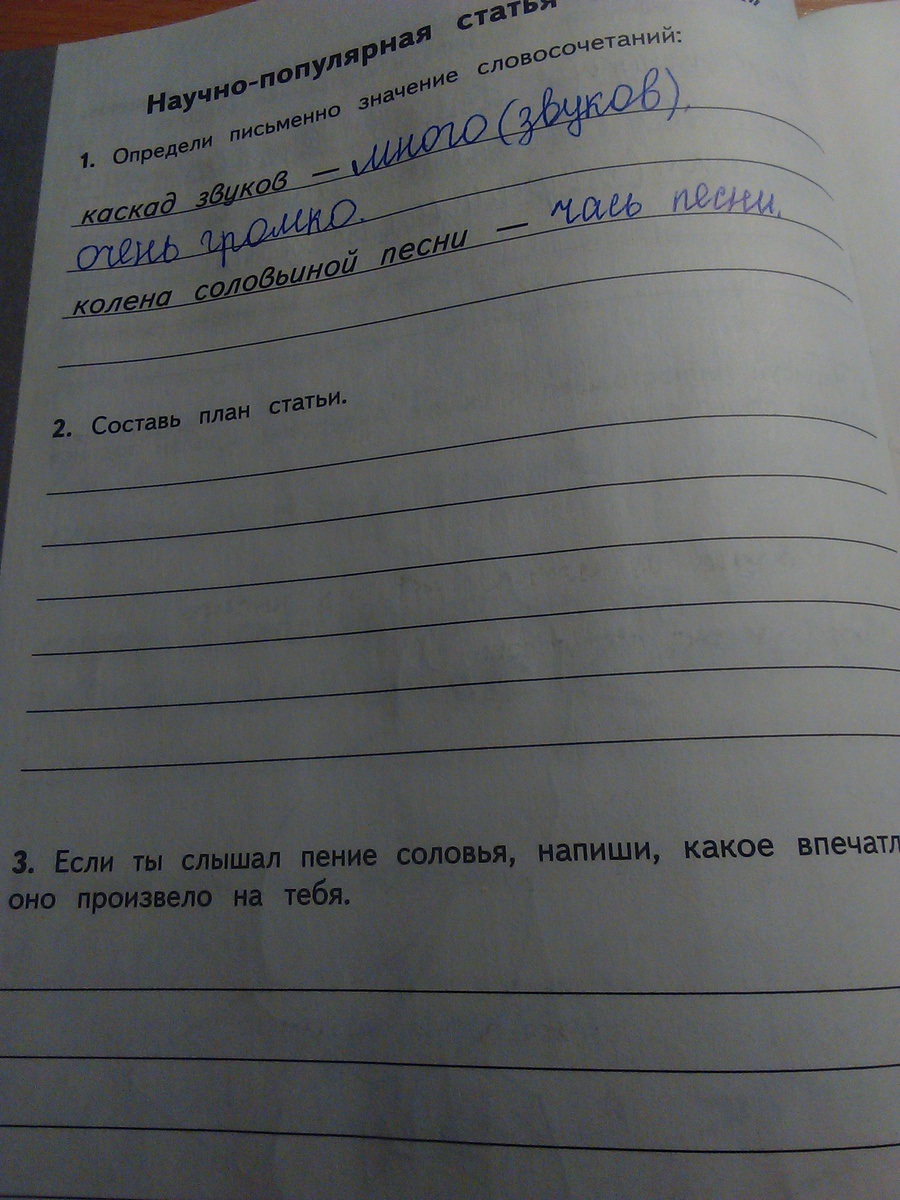 Научно-популярная статья
1. Определи письменно значение словосочетаний:
каскад звуков — много (звуков),
очень громко.
колена соловьиной песни — чась песни.
2. Составь план статьи.
3. Если ты слышал пение соловья, напиши, какое впечатл
оно произвело на тебя.